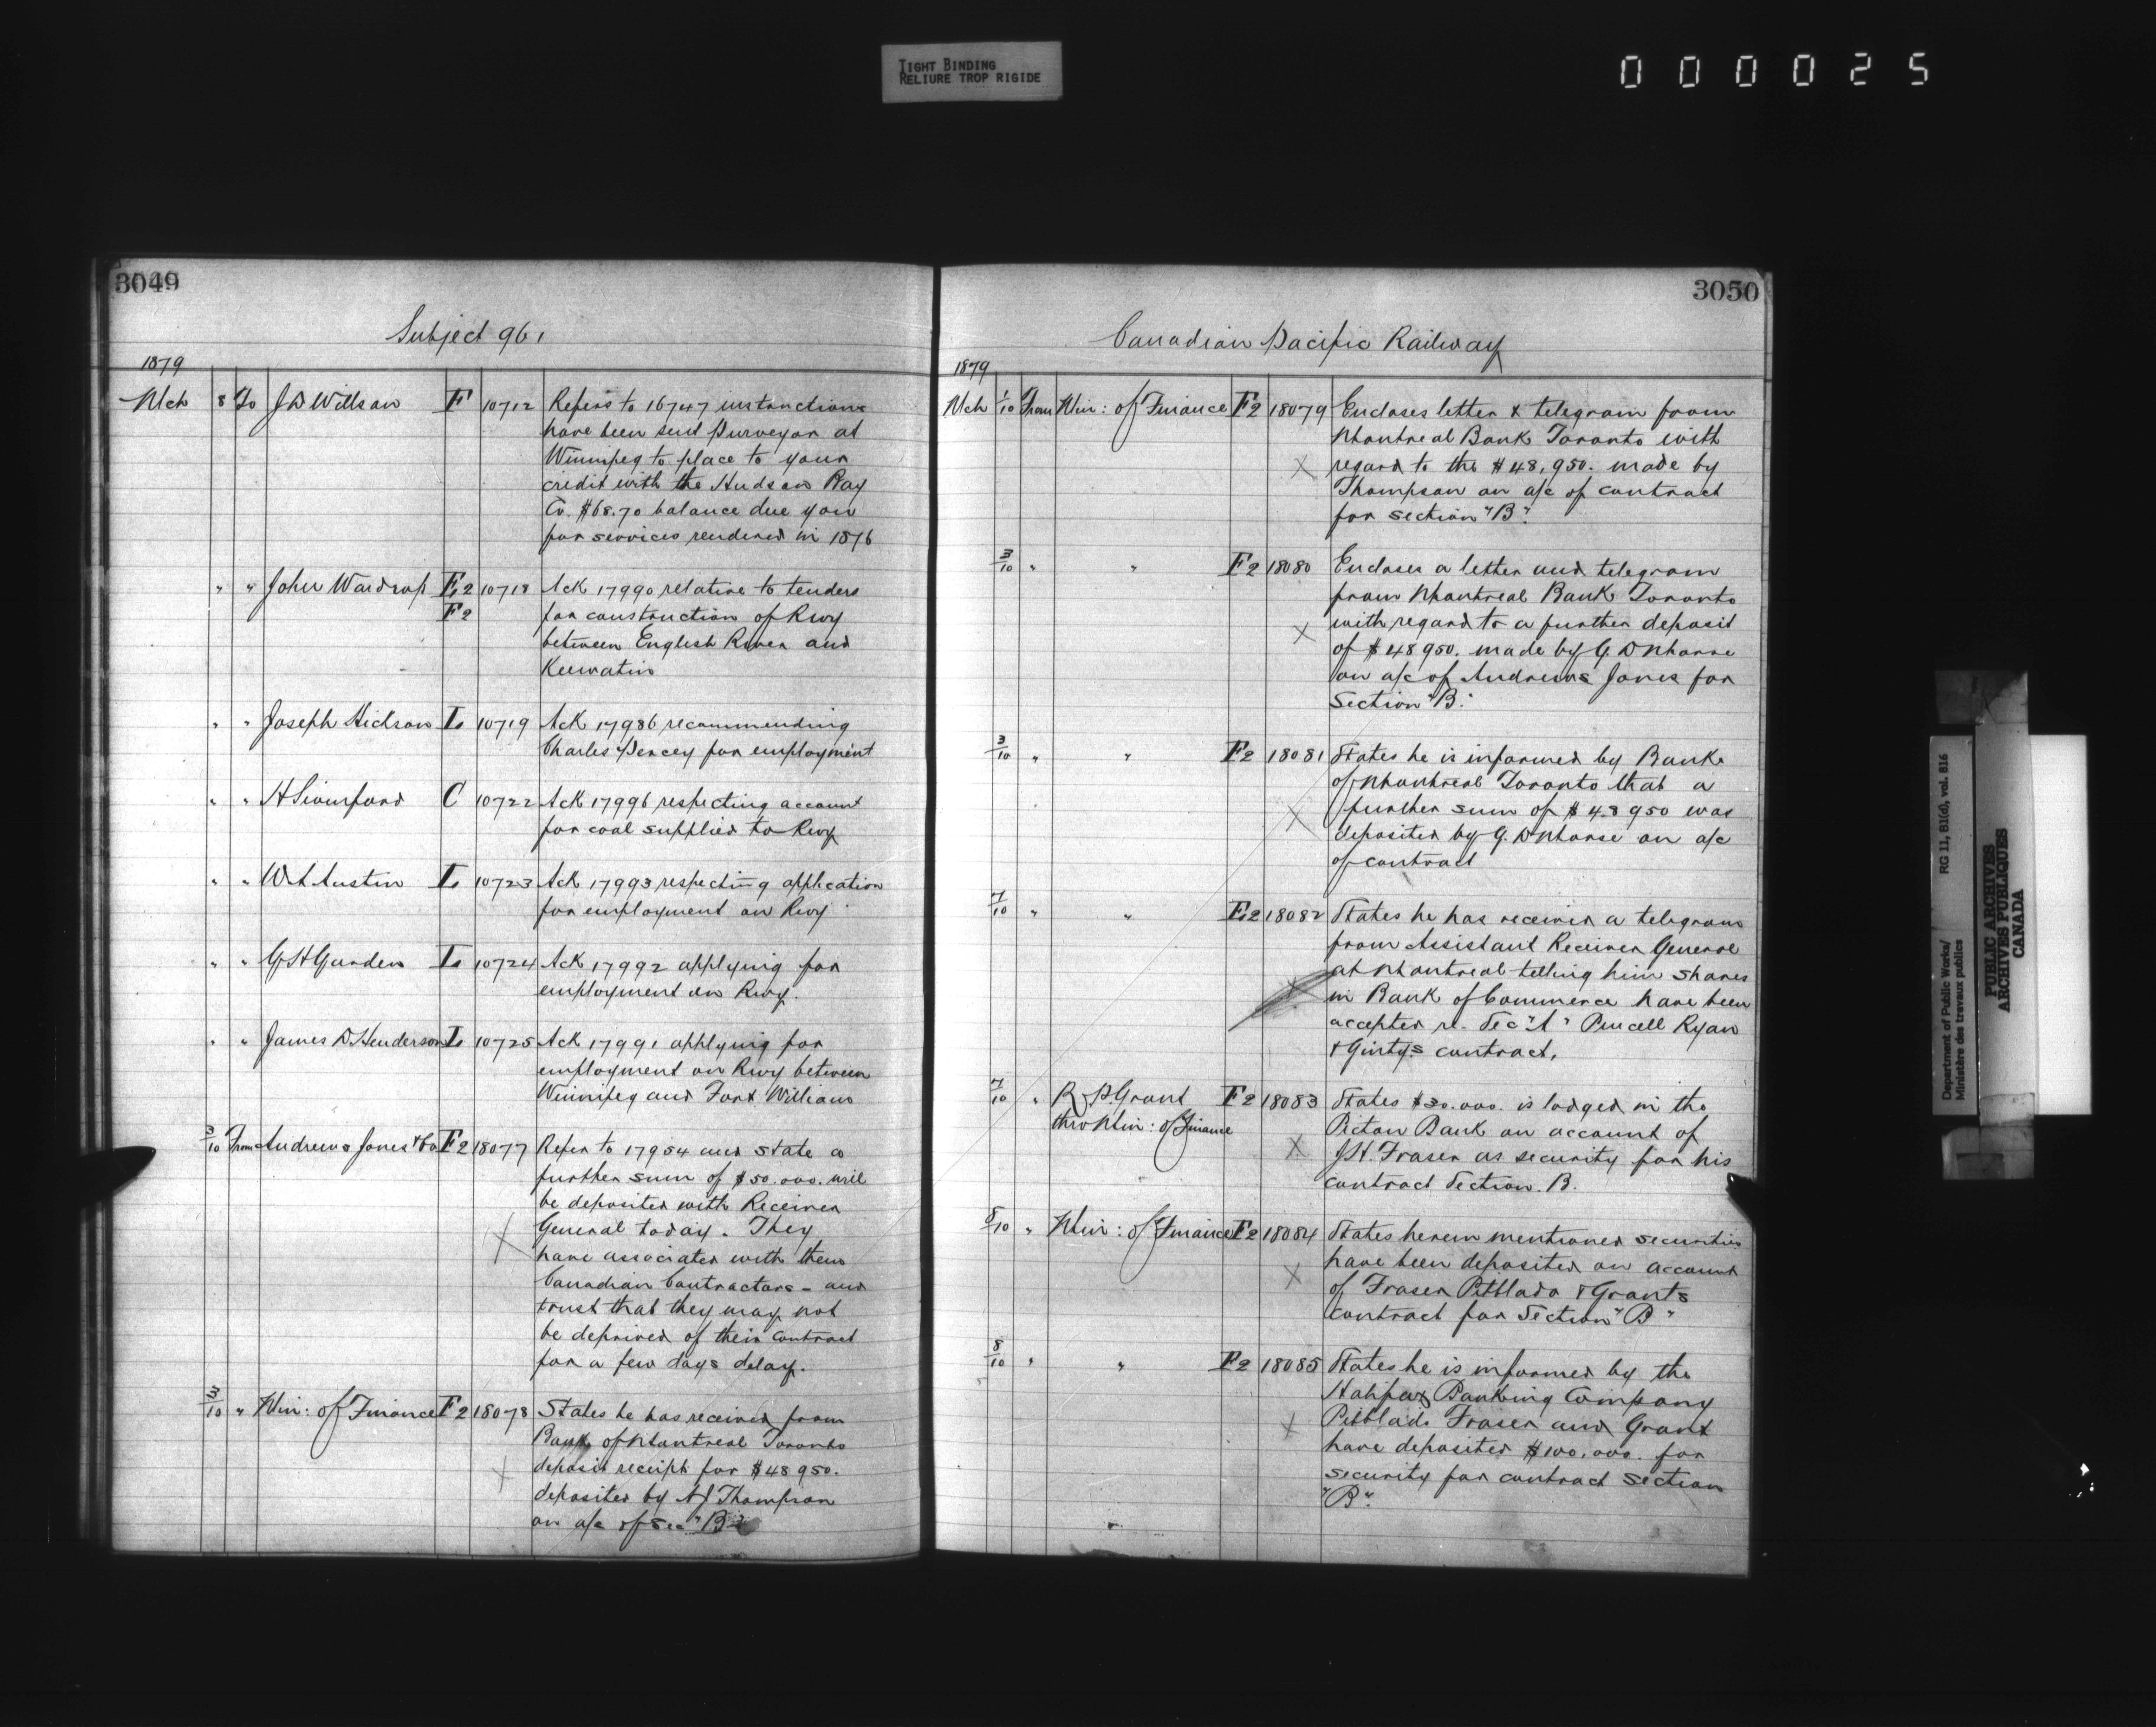 TIGHT BINDING
RELIURE TROP RIGIDE
000025
3049
Subject 961
1879
Mch 8 To J D Willson F 10712 Refers to 16747 instructions
have been sent Purveyor at
Winnipeg to place to your
credit with the Hudson Bay
Co. $68.70 balance due you
for services rendered in 1876
" " John Wardrop E.2 10718 Ack 17990 relative to tenders
F2 for construction of Rwy
between English River and
Keewatin
" " Joseph Hickson I. 10719 Ack 17986 recommending
Charles Percey for employment
" " H C 10722 Ack 17996 respecting account
for coal supplied to Rwy
" " W A Austin I. 10723 Ack 17993 respecting application
for employment on Rwy
" " G H Garden I. 10724 Ack 17992 applying for
employment on Rwy.
" " James D Henderson I. 10725 Ack 17991 applying for
employment on Rwy between
Winnipeg and Fort William
3/10 From Andrews Jones & Co F2 18077 Refer to 17954 and state a
further sum of $50.000. will
be deposited with Receiver
General today. They
have associated with them
Canadian Contractors - and
trust that they may not
be deprived of their contract
for a few days delay.
3/10 " Min: of Finance F2 18078 States he has received from
Bank of Montreal Toronto
deposit receipt for $48950.
deposited by N J Thompson
on a/c of Sec "B"
3050
Canadian Pacific Railway
1879
Mch 1/10 From Min: of Finance F2 18079 Encloses letter & telegram from
Montreal Bank Toronto with
regard to the $48,950. made by
Thompson on a/c of contract
for section "B".
3/10 " " F2 18080 Encloses a letter and telegram
from Montreal Bank Toronto
with regard to a further deposit
of $48950. made by G. D Morse
on a/c of Andrews Jones for
Section "B".
3/10 " " F2 18081 States he is informed by Bank
of Montreal Toronto that a
further sum of $48950 was
deposited by G. D Morse on a/c
of contract
7/10 " " E.2 18082 States he has received a telegram
from Assistant Receiver General
at Montreal telling him shares
in Bank of Commerce have been
accepted re. Sec "A" Purcell Ryan
& Gintys contract.
7/10 " R. P. Grant F2 18083 States $30.000. is lodged in the
thro Min: of Finance Pictou Bank on account of
J H. Fraser as security for his
contract Section. B.
8/10 " Min: of Finance F2 18084 States herein mentioned securities
have been deposited on account
of Fraser Pitblado & Grants
contract for Section "B"
8/10 " " F2 18085 States he is informed by the
Halifax Banking Company
Pitblado Fraser and Grant
have deposited $100.000. for
security for contract section
"B".
Department of Public Works/ RG 11, B1(d), vol. 816
Ministère des travaux publics
PUBLIC ARCHIVES
ARCHIVES PUBLIQUES
CANADA